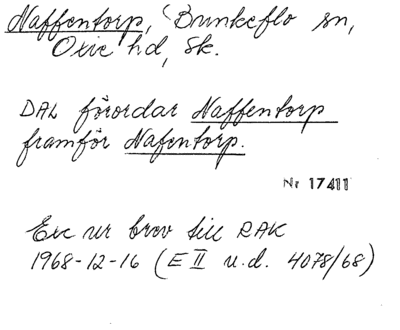 Naffentorp, Bunkeflo sn,
Oxie hd, Sk.
DAL förordar Naffentorp
framför Nafentorp.
Nr 17411
Exc ur brev till RAK
1968-12-16 (E II u.d. 4078/68)